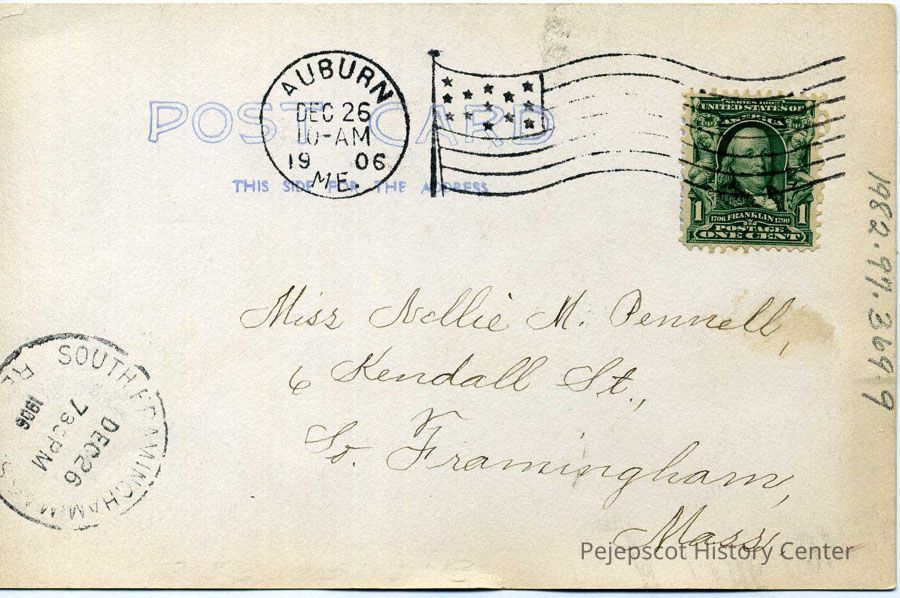 POST CARD
THIS SIDE FOR THE ADDRESS
AUBURN
DEC 26
10-AM
19 06
ME.
SERIES 1902
UNITED STATES OF
AMERICA
1 1
1706 FRANKLIN 1790
POSTAGE
ONE CENT
Miss Nellie M. Pennell,
6 Kendall St.,
So. Framingham,
Mass.
SOUTH FRAMINGHAM, MASS
DEC 26
7 30 PM
1906
1982.97.369.9
Pejepscot History Center